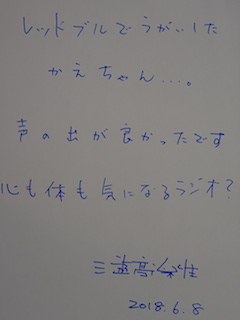 レッドブルでうがいした
かえちゃん…。
声の出が良かったです
心も体も気になるラジオ?
三
2018.6.8